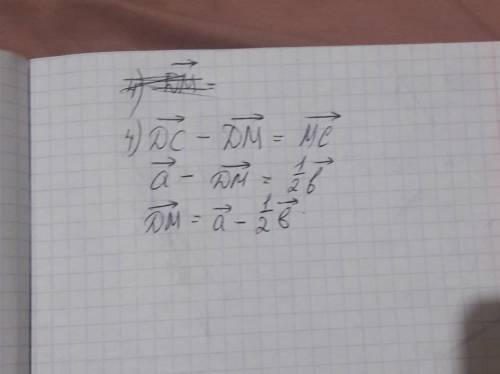 4) \overrightarrow{DM} =
4) \overrightarrow{DC} - \overrightarrow{DM} = \overrightarrow{MC}
\vec{a} - \overrightarrow{DM} = \frac{1}{2}\vec{b}
\overrightarrow{DM} = \vec{a} - \frac{1}{2}\vec{b}